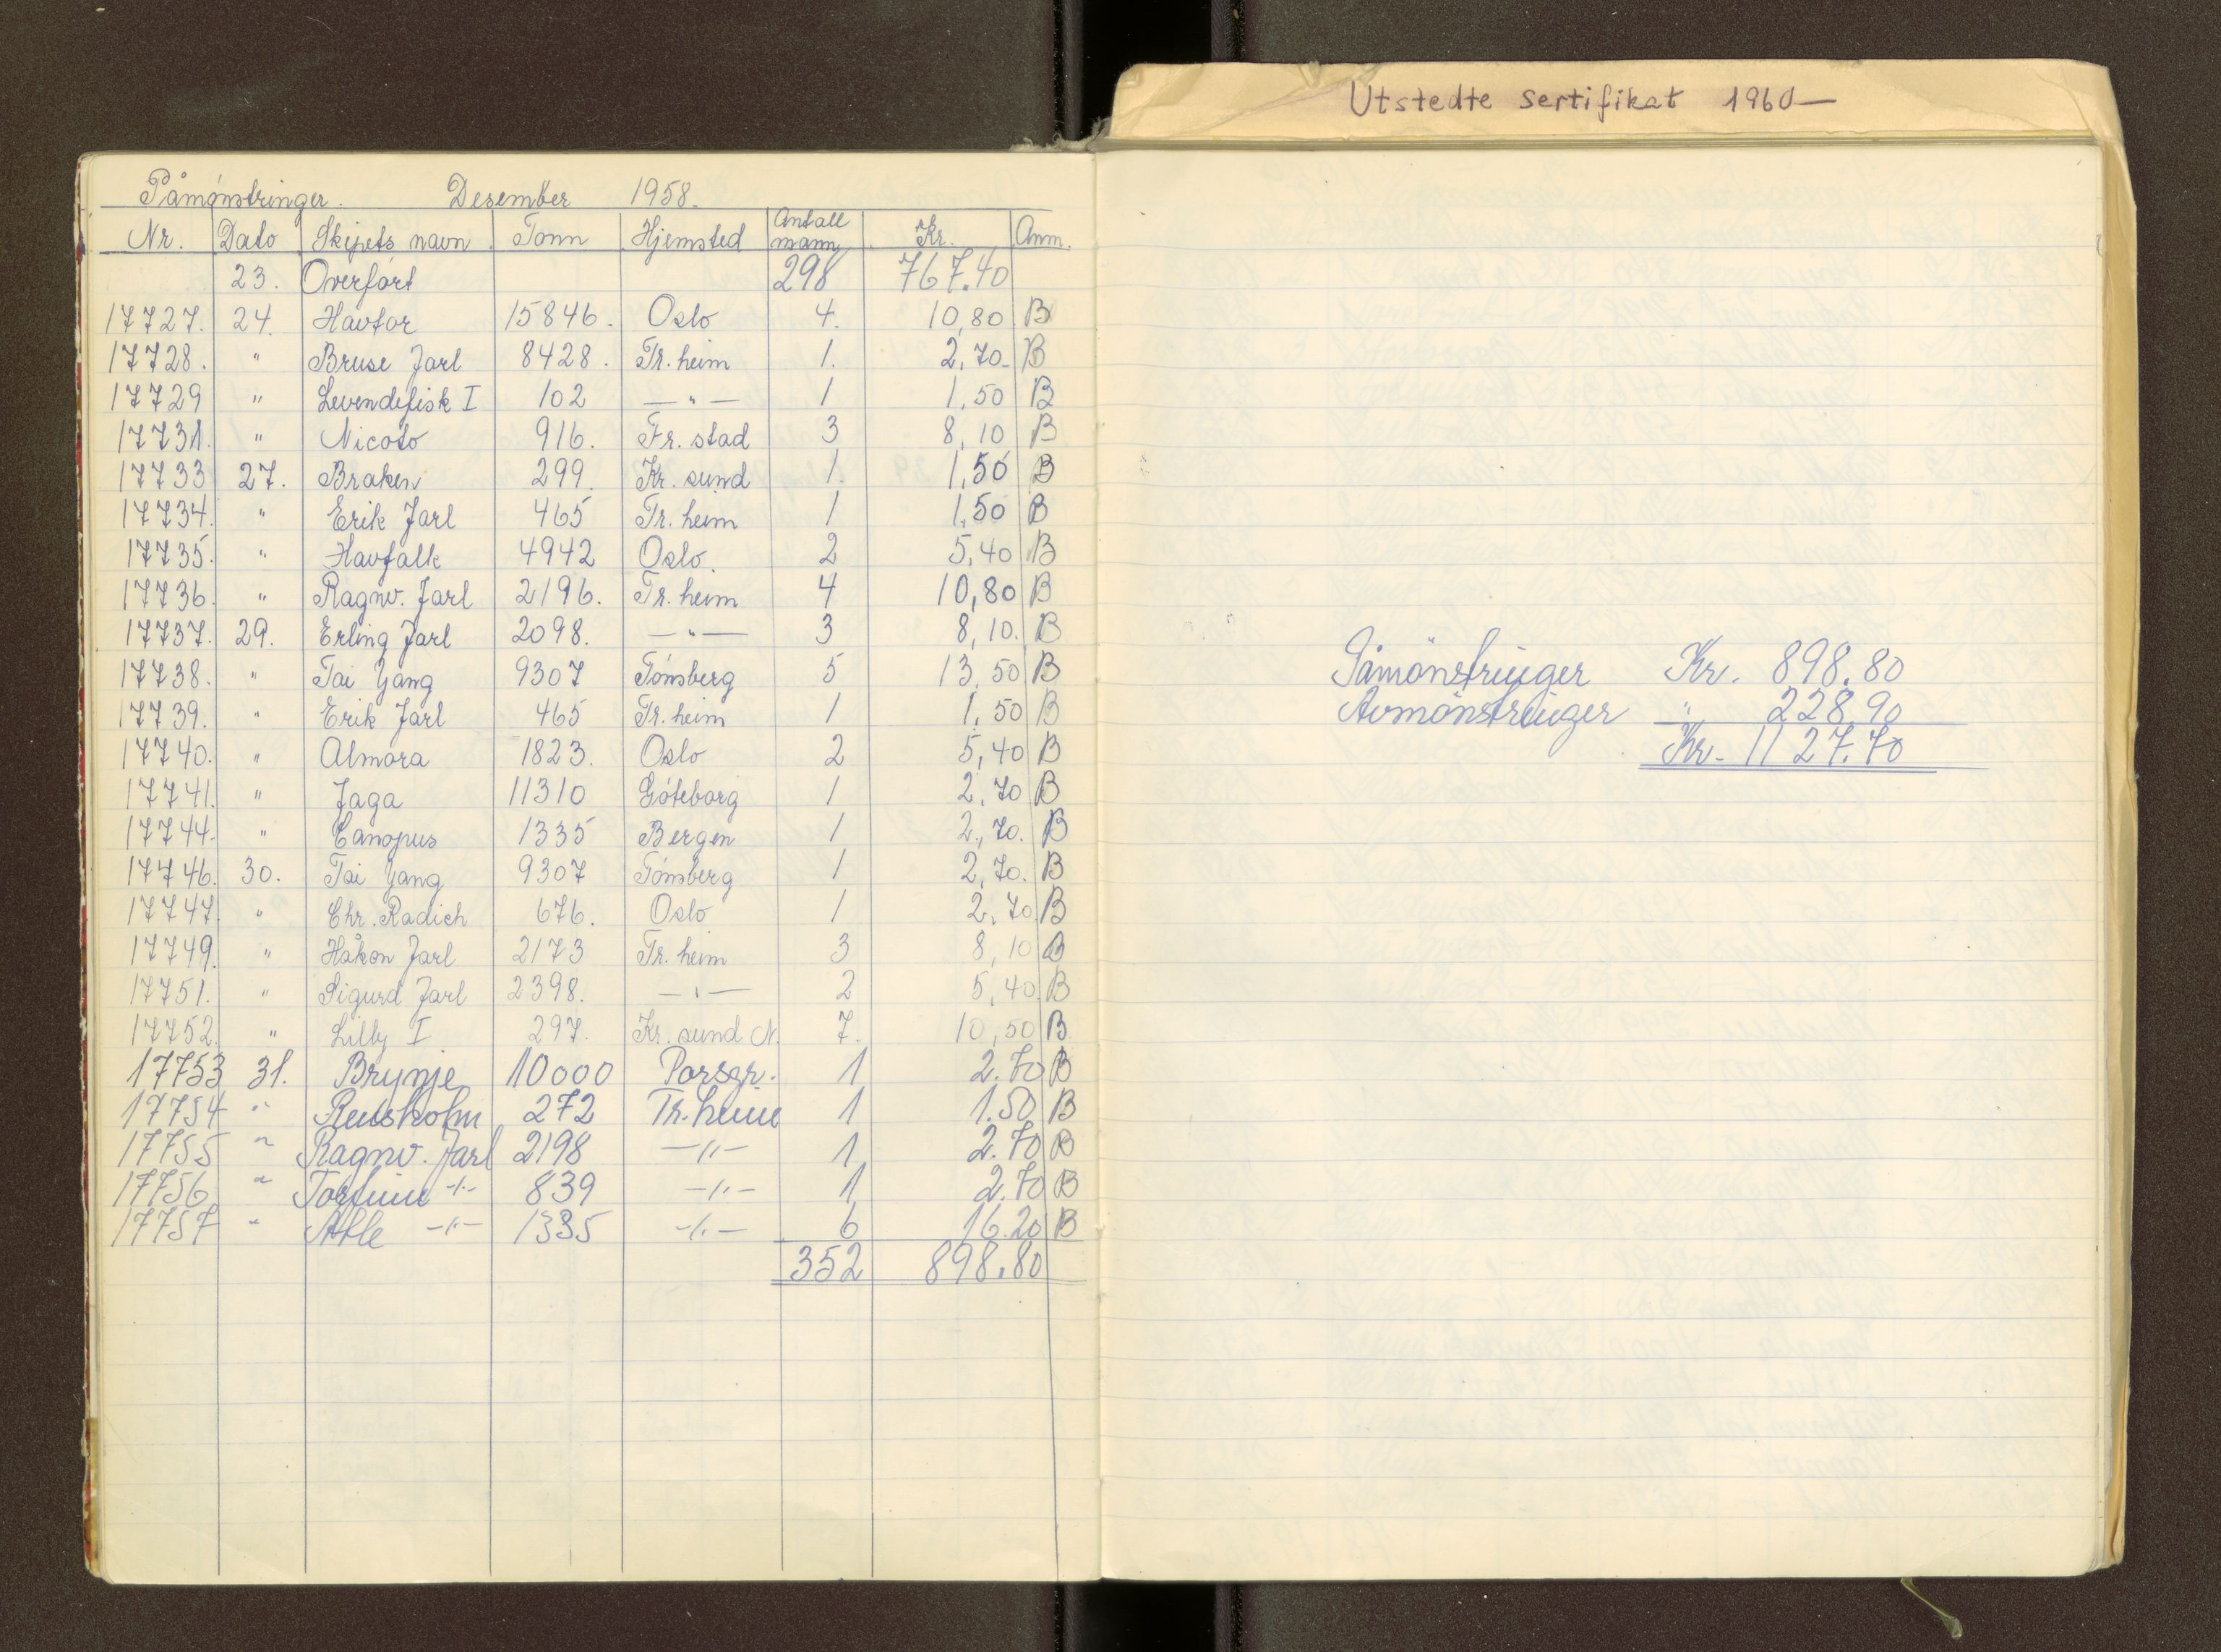 Utstedte sertifikat 1960—
Påmønstringer. Desember 1958.
Nr. Dato Skipets navn Tonn Hjemsted Antall mann Kr. Anm.
23. Overført 298 767.40
17727. 24. Havtor 15846. Oslo 4. 10,80 B
17728. " Bruse Jarl 8428. Tr. heim 1. 2,70. B
17729 " Levendefisk I 102 — " — 1 1,50 B
17731. " Nicoto 916. Fr. stad 3 8,10 B
17733 27. Braken 299. Kr. sund 1. 1,50 B
17734. " Erik Jarl 465 Tr. heim 1 1,50 B
17735. " Havfalk 4942 Oslo. 2 5,40 B
17736. " Ragnv. Jarl 2196. Tr. heim 4 10,80 B
17737. 29. Erling Jarl 2098. — " — 3 8,10. B
17738. " Tai Yang 9307 Tønsberg 5 13,50 B
17739. " Erik Jarl 465 Tr. heim 1 1,50 B
17740. " Almora 1823. Oslo 2 5,40 B
17741. " Jaga 11310 Gøteborg 1 2,70 B
17744. " Canopus 1335 Bergen 1 2,70. B
17746. 30. Tai Yang 9307 Tønsberg 1 2,70. B
17747. " Chr. Radich 676. Oslo 1 2,70. B
17749. " Håkon Jarl 2173 Tr. heim 3 8,10 B
17751. " Sigurd Jarl 2398. — " — 2 5,40. B
17752. " Lilly I 297. Kr. sund N. 7. 10,50 B
17753 31. Brynje 10000 Porsgr. 1 2.70 B
17754 " 272 Tr. heim 1 1.50 B
17755 " Ragnv. Jarl 2198 — " — 1 2.70 B
17756 " Torfinn — " — 839 — " — 1 2.70 B
17757 " Atle — " — 1335 — " — 6 16.20 B
352 898.80
Påmønstringer Kr. 898.80
Avmønstringer " 228.90
Kr. 1127.70